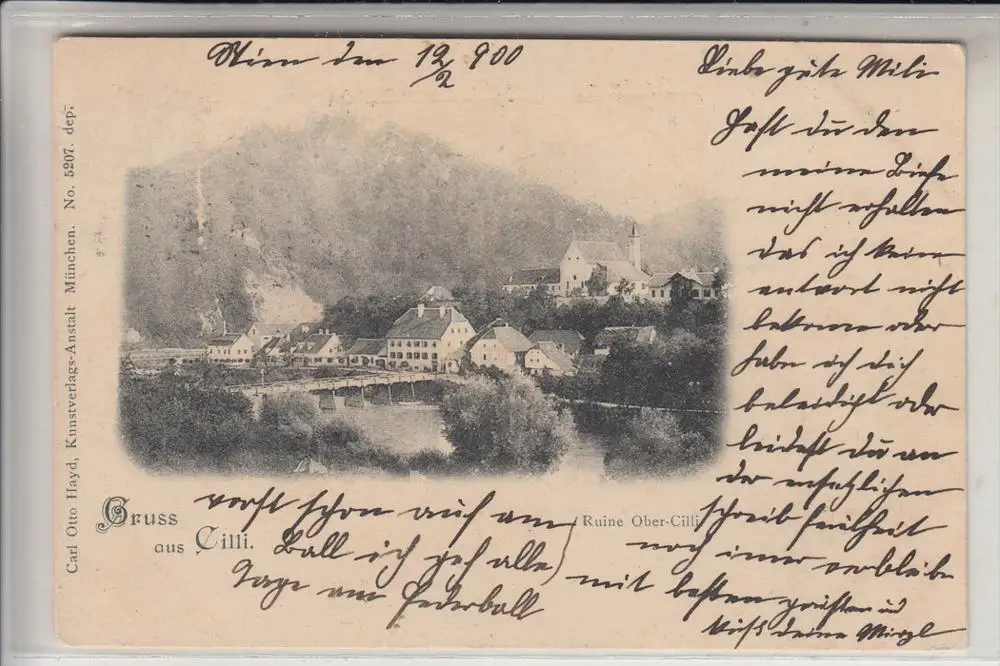 Wien den 12/2 900
Liebe gute Mili
Hast du den
meine Briefe
nicht erhalten
das ich keine
antwort nicht
bekome oder
habe ich dich
beleidicht oder
leidest du an
der ensezlichen
schreib faulheit
noch imer verbleibe
mit besten grüßen und
Kuß deine Mirzl
warst schon auf am
Ball ich geh alle
Tage am Federball
Gruss
aus Cilli.
Ruine Ober-Cilli
Carl Otto Hayd, Kunstverlags-Anstalt München. No. 5207. dep.